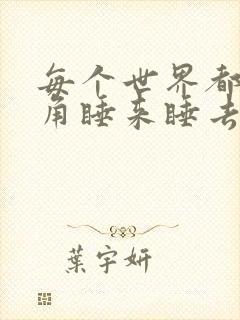 每个世界都
角睡来睡去
葉宇妍